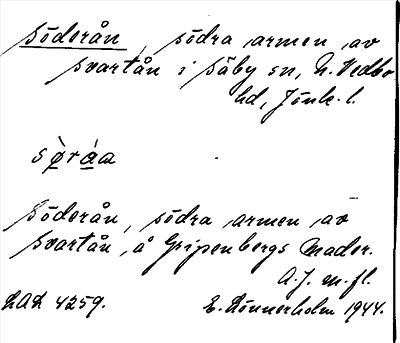 Söderån, södra armen av
Svartån i Säby sn, N. Vedbo
hd, Jönk. l.
sø̀ràa
Söderån, södra armen av
Svartån, å Gripenbergs Mader.
A.J. m.fl.
LAL 4259. E. Rönnerholm 1944.